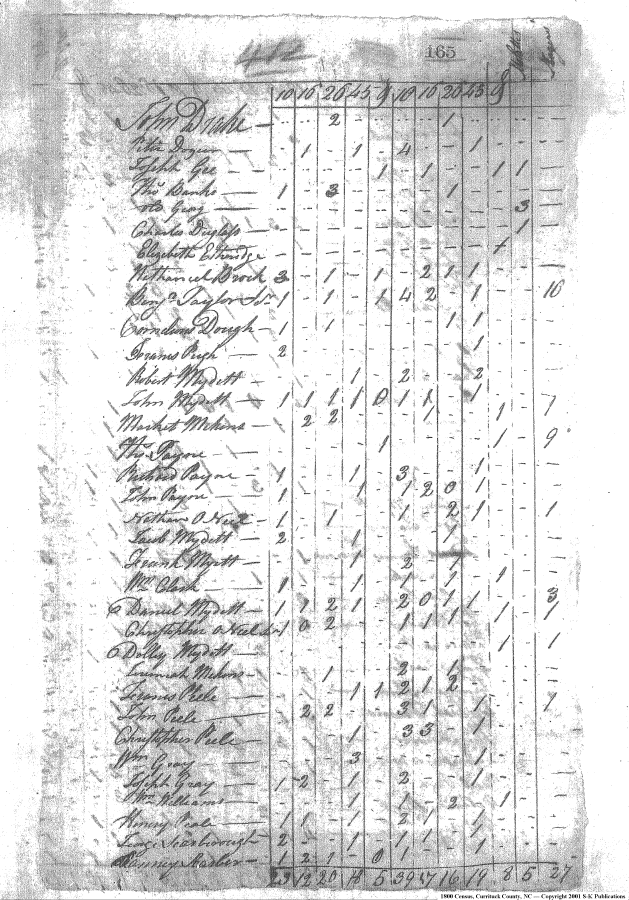 165
10 16 26 45 9 10 16 26 45 9
John Drake — - - 2 - - - - 1 - - - —
Peter Dogeur — - 1 - 1 - 4 - - 1 - - —
Joseph Gee — - - - - 1 - 1 - - 1 1 —
Thos Banks — 1 - 3 - - - - 1 - - - —
old Georg — - - - - - - - - - - 3 —
Charles — - - - - - - - - - - 1 —
Elizabeth Etheridge
Nathaniel Brock 3 - 1 - 1 - 2 1 1 - - —
Benja Taylor Sr 1 - 1 - 1 4 2 - 1 - - 16
Cornelious Dough — 1 - 1 - - - - 1 1 - -
Pugh — 2 - - - - - - - 1 - -
Robert Mydett — - - - 1 - 2 - - 2 - -
John Mydett — 1 1 1 1 0 1 1 - 1 - - 1
Market Mekins — - 2 2 - - - 1 - - 1 - 1
Thos Payne — - - - - 1 - - - - 1 - 9
Richard Payne — 1 - - 1 - 3 - - 1 - -
John Payne — 1 - - 1 - 1 2 0 1 - -
Nathan O Neel — 1 - 1 - - 1 - 2 1 - - 1
Jacob Mydett — 2 - - 1 - - - 1 - - -
Mydett — - - - 1 - 2 - 1 - - -
Wm Clark — 1 - - 1 - 1 - 1 - 1 -
Daniel Mydett — 1 1 2 1 - 2 0 1 1 - - 3
Christopher O Neel 1 0 2 - - 1 1 1 - 1 - 1
Dolley Mydett — - - - - - - - - - 1 - 1
Jeremiah Mekins — - - 1 - - 2 - 1 - - -
Peele — - - - 1 1 2 1 2 - - -
John Peele — - 2 2 - - 3 1 - 1 - - 1
Christopher Peele — - - - 1 - 3 3 - 1 - -
Wm Gray — - - - 3 - - - - 1 - -
Joseph Gray — 1 2 - 1 - 2 - - 1 - -
Wm Williams — - - - 1 - 1 - 2 - 1 -
Henry Peele — 1 1 - 1 - 2 1 - 1 - -
Scarborough — 2 - - 1 - 1 1 - 1 - -
1 2 1 - 0 1 - - - - -
23 12 20 5 39 17 16 19 8 5 27
1800 Census, Currituck County, NC — Copyright 2001 S-K Publications